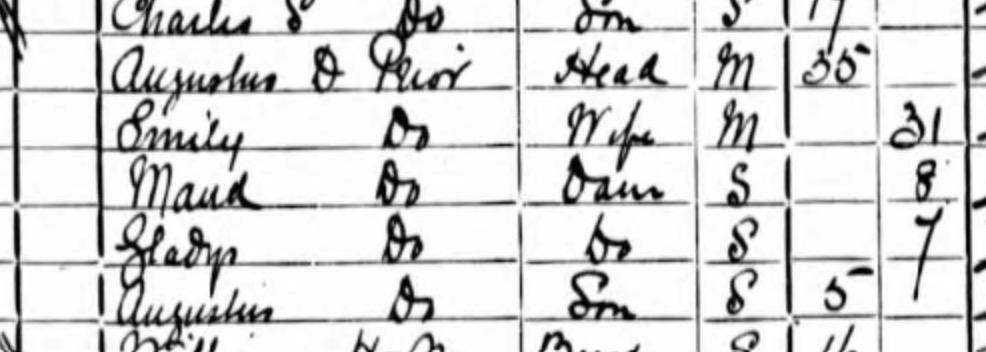 Charles S Do Son S 17
Augustus D Prior Head M 35
Emily Do Wife M 31
Maud Do Daur S 8
Gladys Do Do S 7
Augustus Do Son S 5